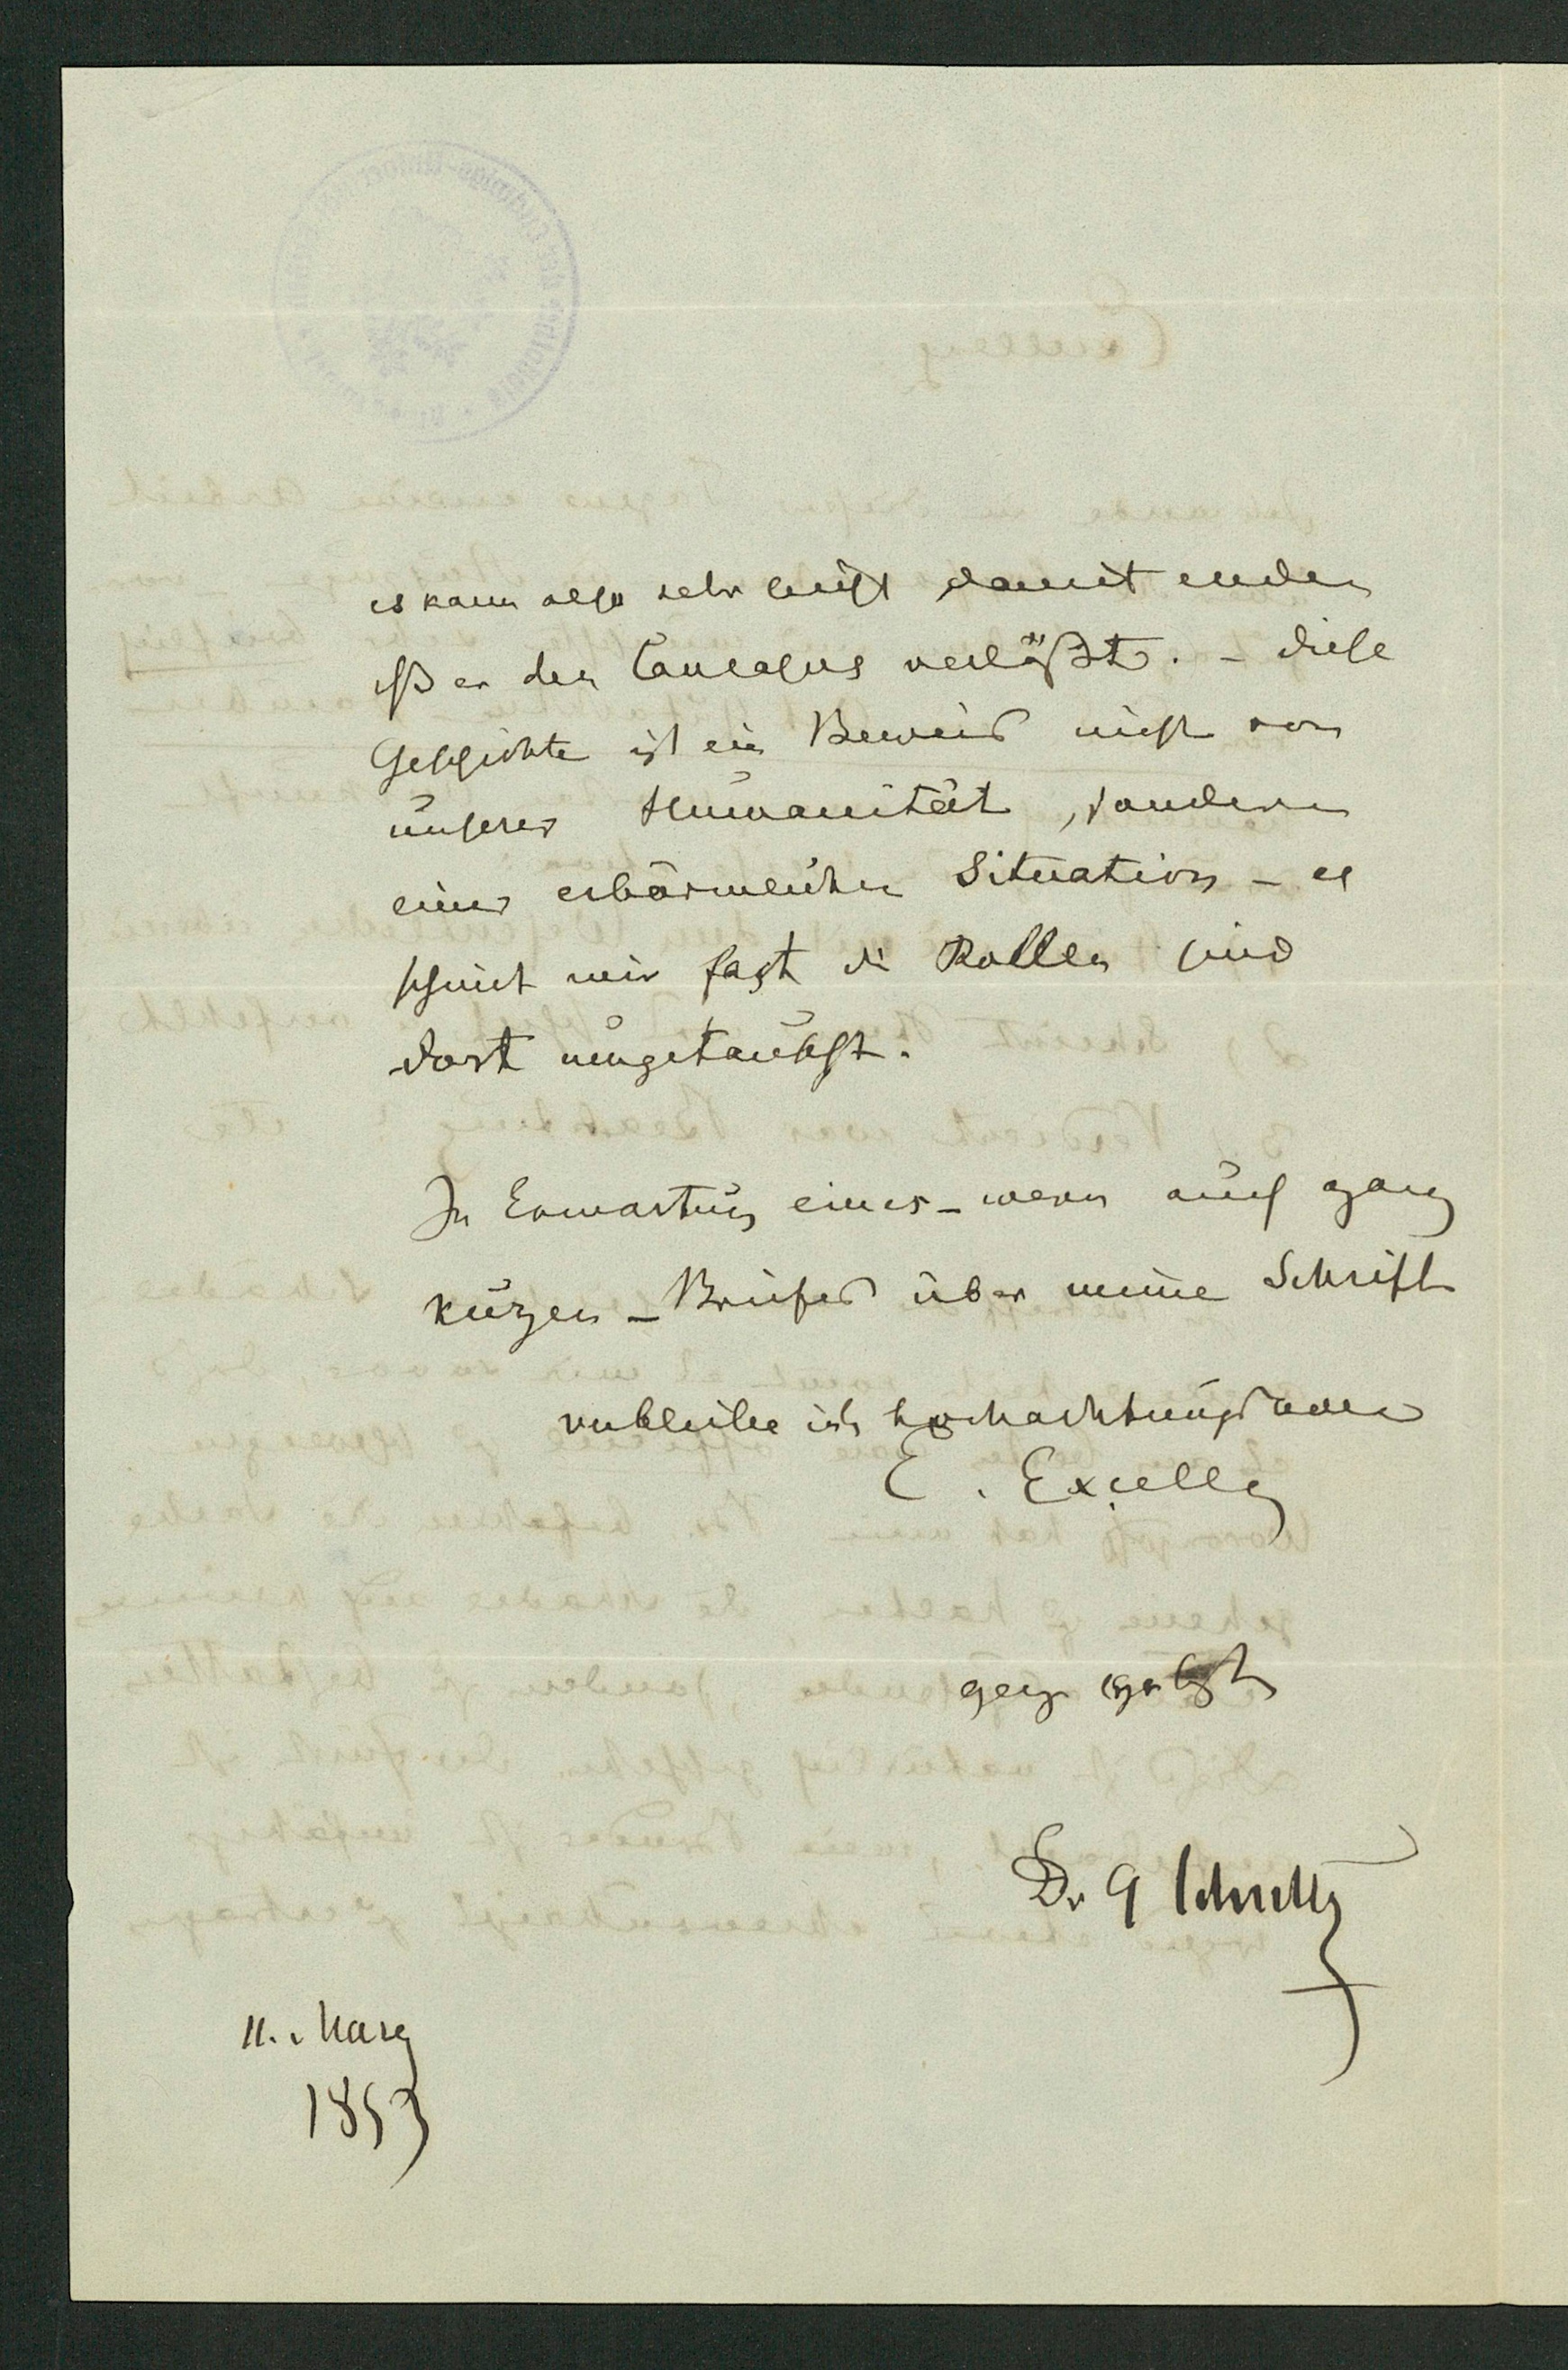 es kann also sehr leicht damit enden
daß er den Caucasus verläßt. – diese
Geschichte ist ein Beweis nicht von
unserer Humanität, sondern
einer erbärmlichen Situation – es
scheint mir fast die Rollen sind
dort umgetauscht.
In Erwartung eines – wenn auch ganz
kurzen – Briefes über meine Schrift
verbleibe ich hochachtungsvoll
E. Excellz
ganz
Dr G
11. Marz
1853